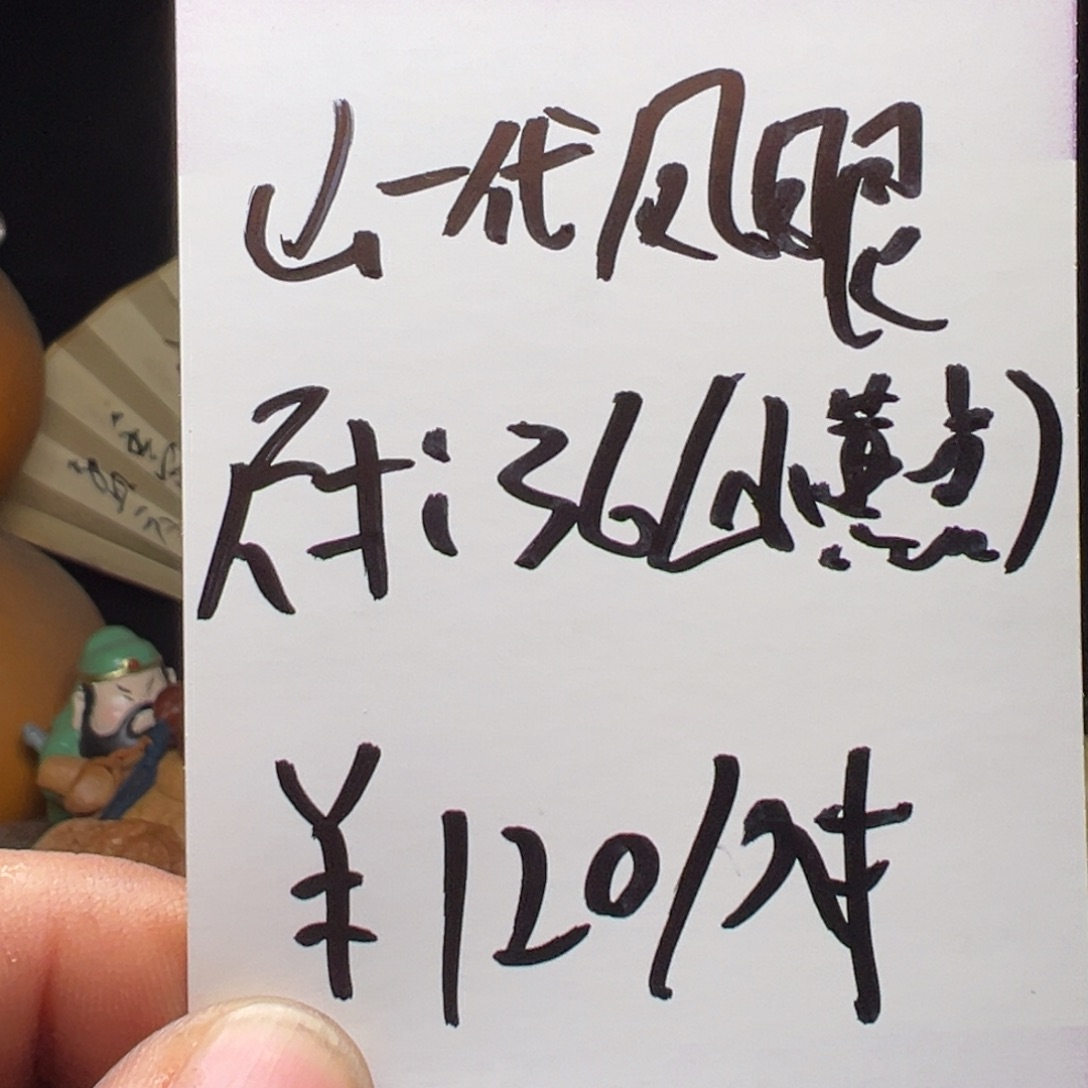 山一代凤眼
尺寸：36（小黄点）
￥120/对